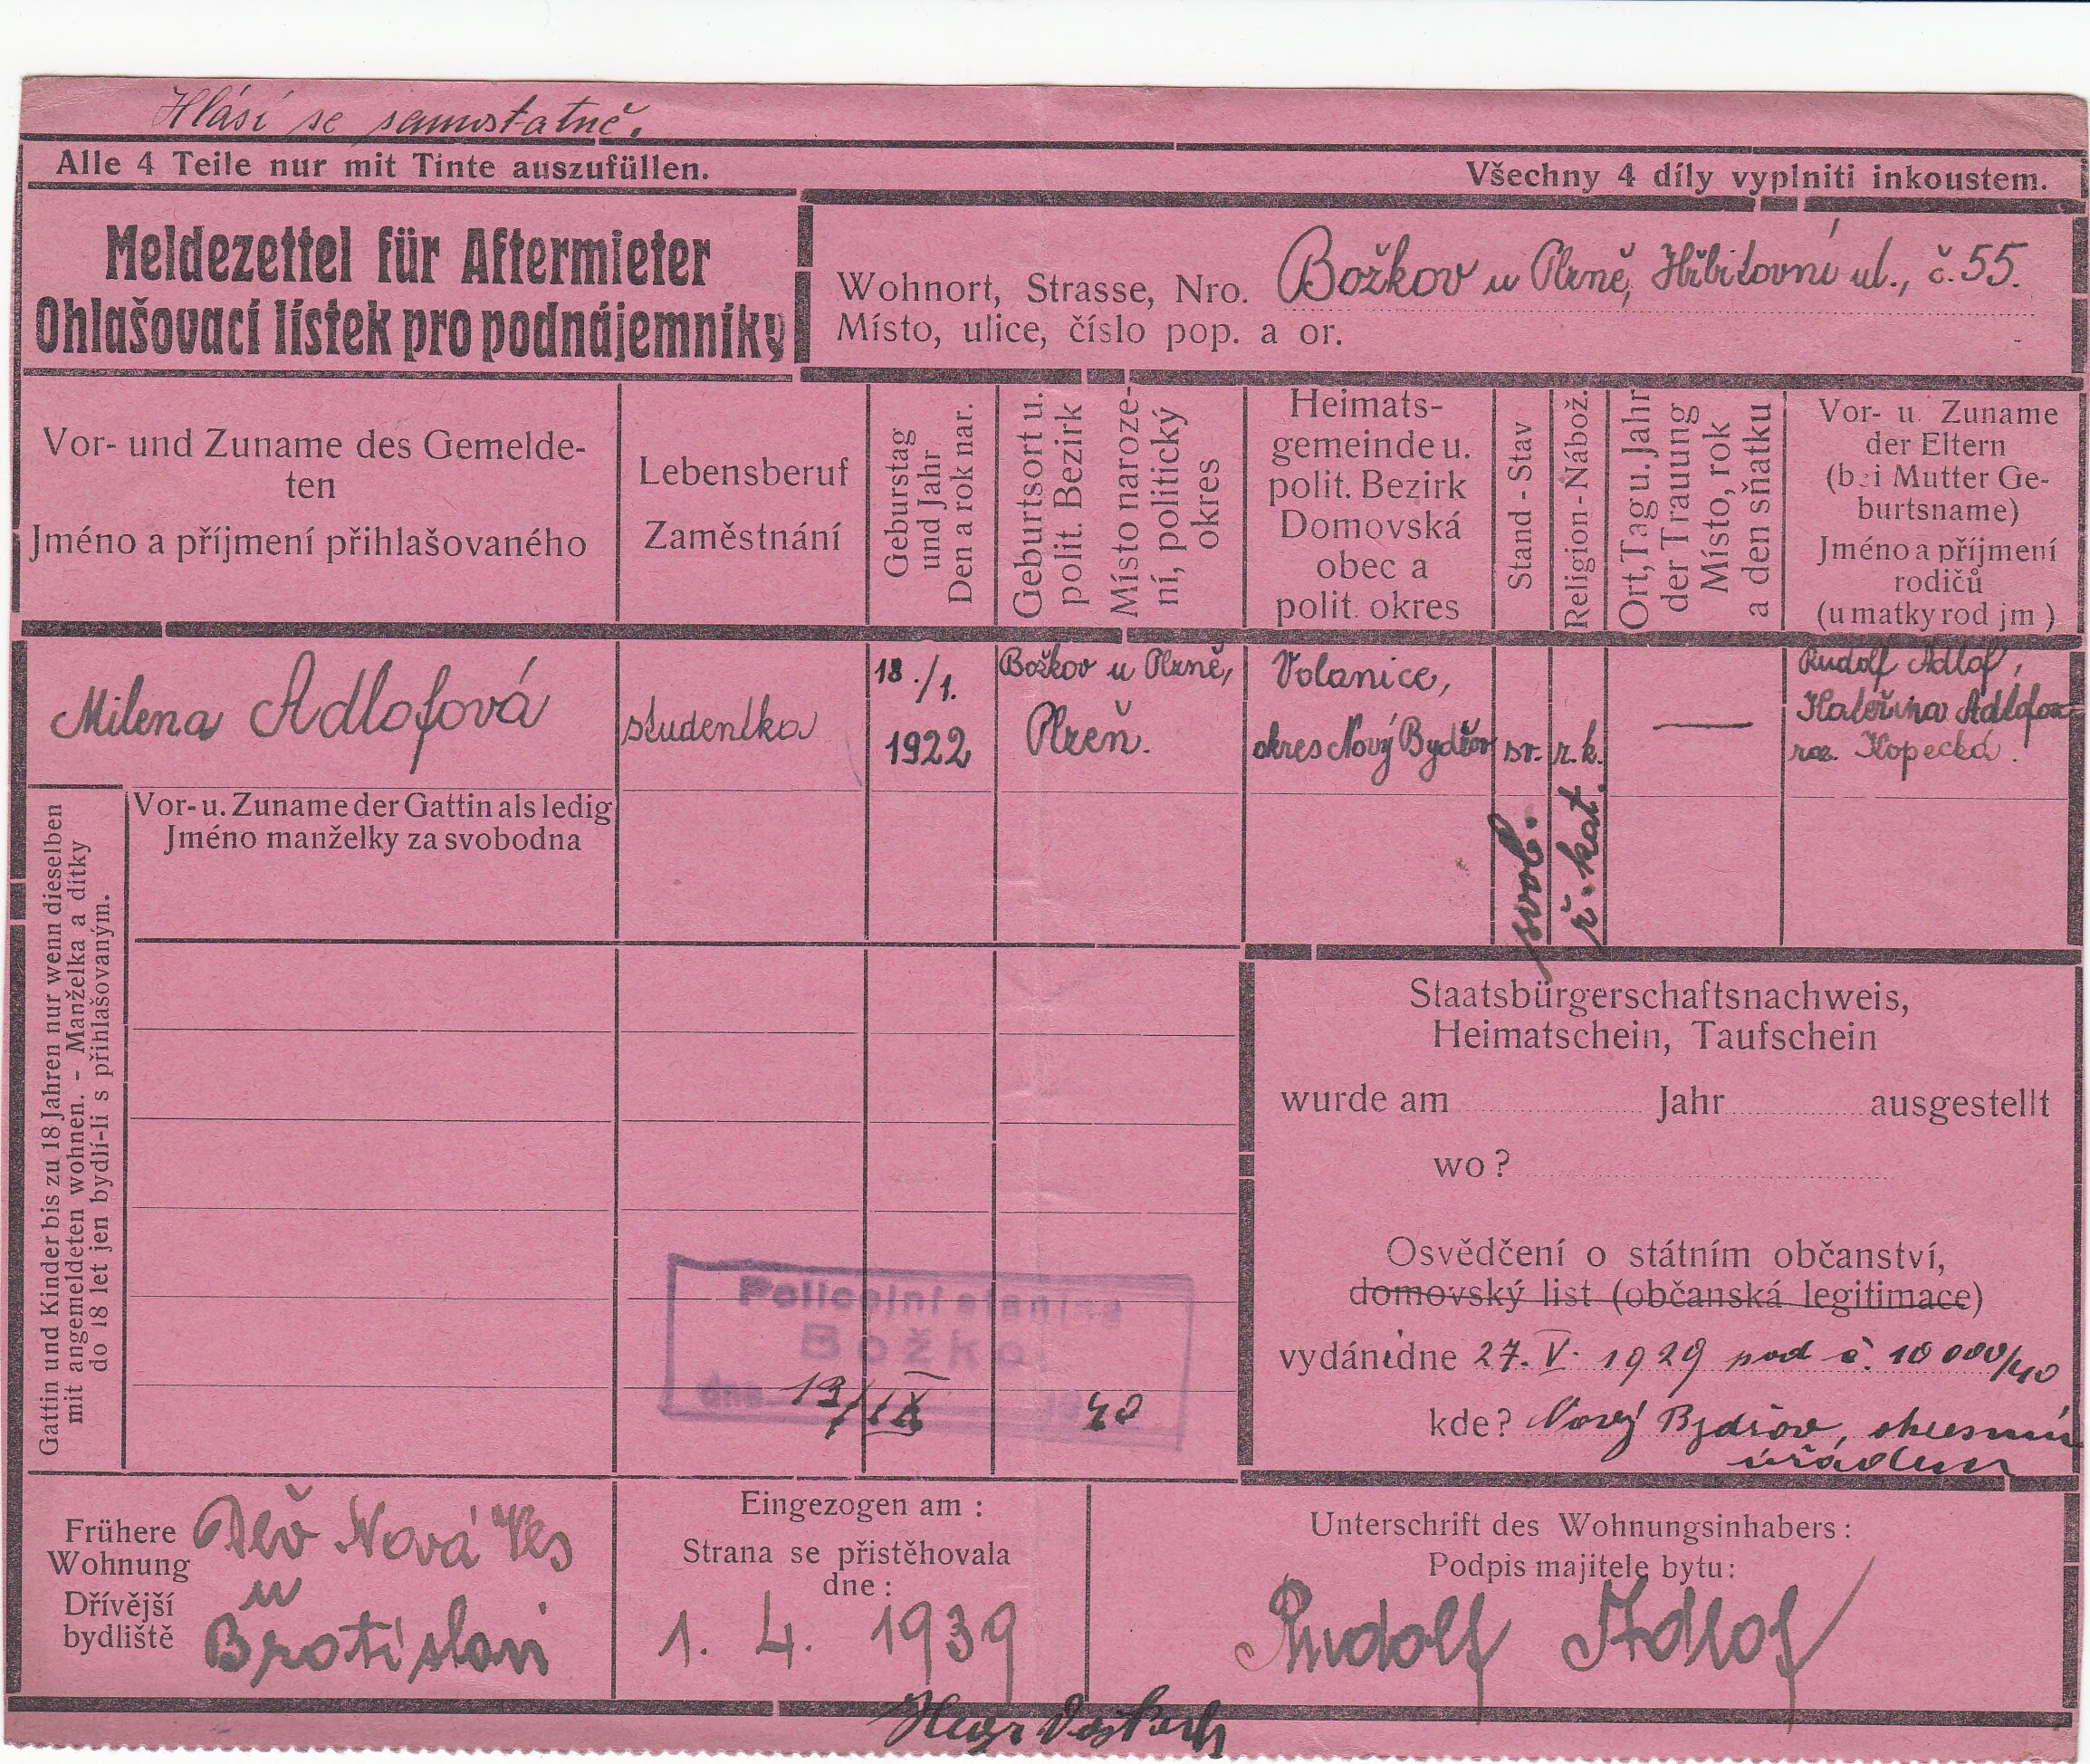 Hlásí se samostatně.
Alle 4 Teile nur mit Tinte auszufüllen.
Všechny 4 díly vyplniti inkoustem.
Meldezettel für Aftermieter
Ohlašovací lístek pro podnájemníky
Wohnort, Strasse, Nro. Božkov u Plzně, Hřbitovní ul., č. 55.
Místo, ulice, číslo pop. a or.
Vor- und Zuname des Gemelde-
ten
Jméno a příjmení přihlašovaného
Lebensberuf
Zaměstnání
Geburstag
und Jahr
Den a rok nar.
Geburtsort u.
polit. Bezirk
Místo naroze-
ní, politický
okres
Heimats-
gemeinde u.
polit. Bezirk
Domovská
obec a
polit. okres
Stand - Stav
Religion - Nábož.
Ort, Tag u. Jahr
der Trauung
Místo, rok
a den sňatku
Vor- u. Zuname
der Eltern
(bei Mutter Ge-
burtsname)
Jméno a příjmení
rodičů
(u matky rod jm )
Milena Adlofová
studentka
18./1.
1922
Božkov u Plzně,
Plzeň.
Volanice,
okres Nový Bydžov
sv.
r. k.
svob.
ř. kat.
Rudolf Adlof,
Kateřina Adlofová
roz. Kopecká.
Gattin und Kinder bis zu 18 Jahren nur wenn dieselben
mit angemeldeten wohnen. - Manželka a dítky
do 18 let jen bydlí-li s přihlašovaným.
Vor- u. Zuname der Gattin als ledig
Jméno manželky za svobodna
Staatsbürgerschaftsnachweis,
Heimatschein, Taufschein
wurde am Jahr ausgestellt
wo?
Osvědčení o státním občanství,
domovský list (občanská legitimace)
vydáni dne 27. V. 1929 pod č. 10 000/40
kde? Nový Bydžov, okresním
úřadem
Policejní stanice
Božkov
dne 19/IX 1940
Frühere
Wohnung
Dřívější
bydliště
Děv Nová Ves
u
Bratislavi
Eingezogen am :
Strana se přistěhovala
dne :
1. 4. 1939
Unterschrift des Wohnungsinhabers :
Podpis majitele bytu :
Rudolf Adlof